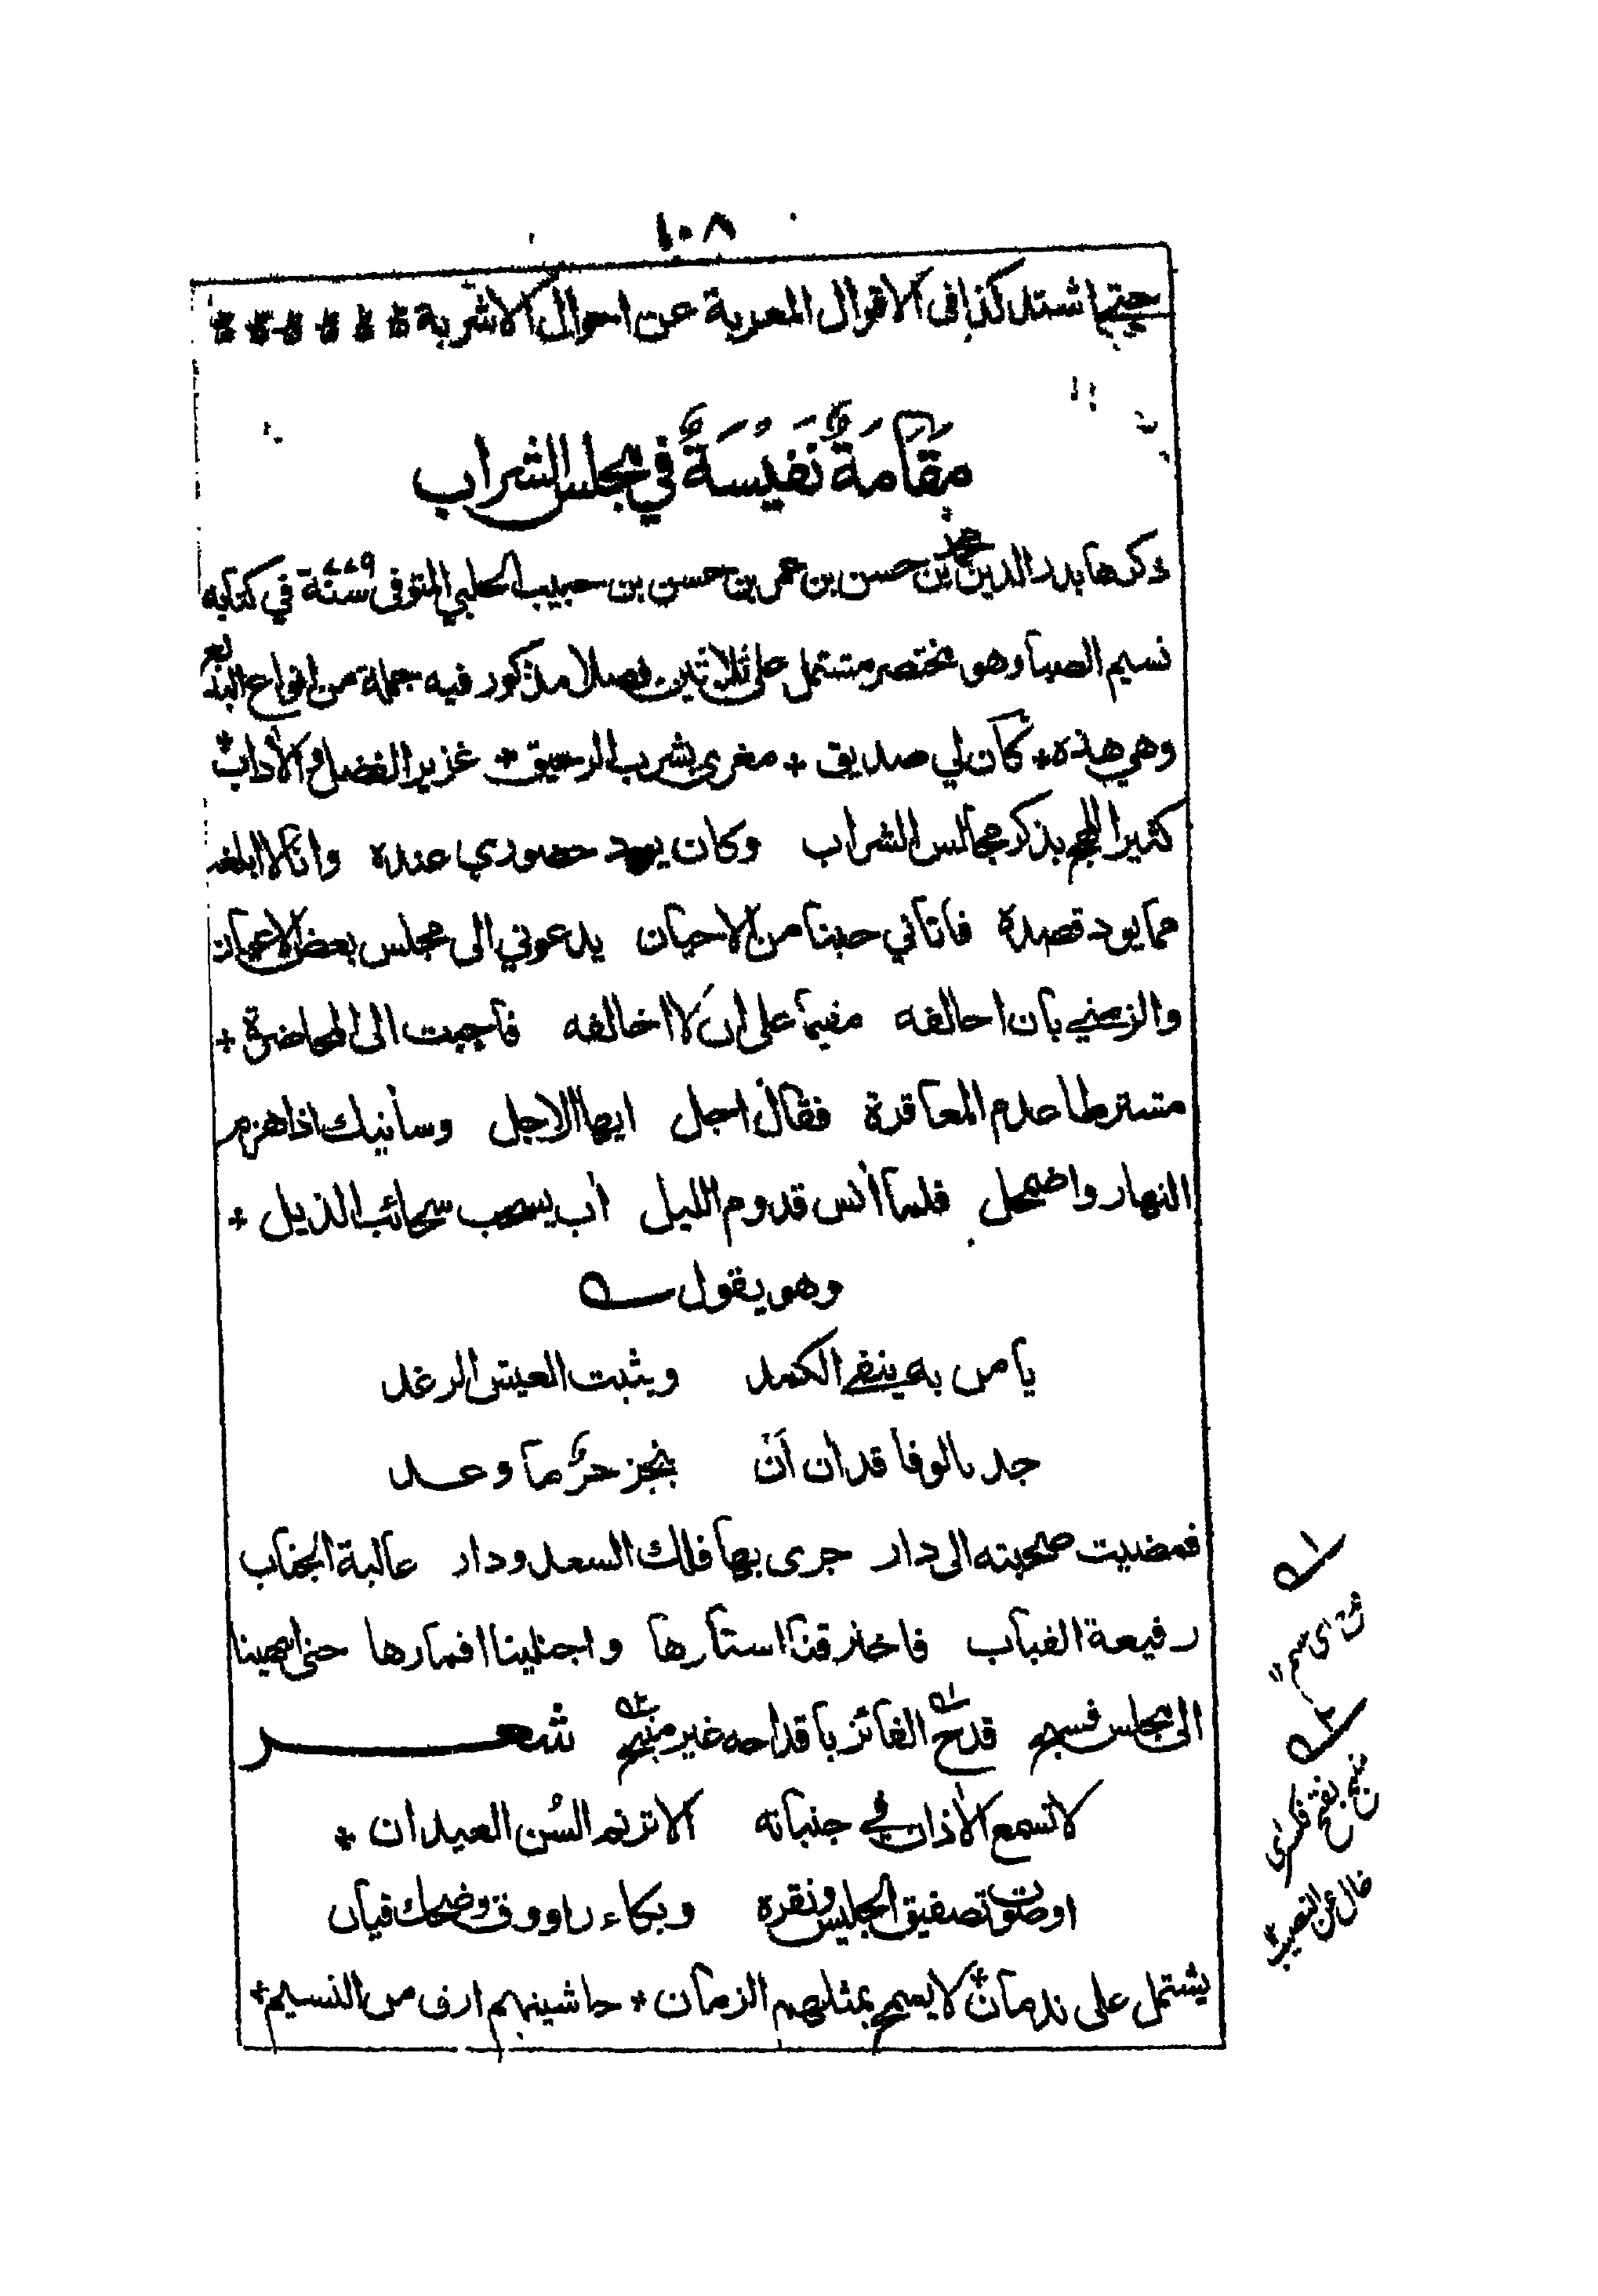 ١٠٨
اشتد كذا في الاقوال المعربة عن احوال الاشربة
مَقَامَةٌ نَفِيْسَةٌ في مجلس الشراب
ذكرها بدر الدين محمد بن حسن بن عمر بن حسن بن حبيب الحلبي المتوفى سنة ٧٧٩ في كتابه
نسيم الصبا وهو مختصر مشتمل على ثلاثين فصلا مذكور فيه جملة من انواع البديع
وهي هذه * كان لي صديق * مغرى بشرب الرحيق * غزير الفضل والآداب *
كثير اللهج بذكر مجالس الشراب وكان يود حضوري عنده وانا لا ابلغه
مما يود قصده فاتاني حينا من الاحيان يدعوني الى مجلس بعض الاعيان
والزمني بان احالفه مقيما على ان لا اخالفه فاجبت الى المحاضرة *
مشترطا عدم المعاقرة فقال اجل ايها الاجل وسأتيك اذا هزم
النهار واضمحل فلما آنس قدوم الليل آب يسحب سحائب الذيل *
وهو يقول
يا من به ينفى الكمد ويثبت العيش الرغد
جد بالوفا قد آن أن ينجز حرٌ ما وعد
فمضيت صحبته الى دار جرى بها فلك السعد ودار عالية الجناب
رفيعة القباب فاخترقنا استارها واجتلينا اقمارها حتى انتهينا
الى مجلس فسيح قدح الفائز باقداحه غير منيح شعر
لا تسمع الآذان في جنباته الا ترنم السُن العيدان *
او صوت تصفيق الجليس ونقره وبكاء راووق وضحك قيان
يشتمل على ندمان * لا يسمح بمثلهم الزمان * حاشيتهم ارق من النسيم *
منيح بفتح فكسر اى
خال عن النصيب